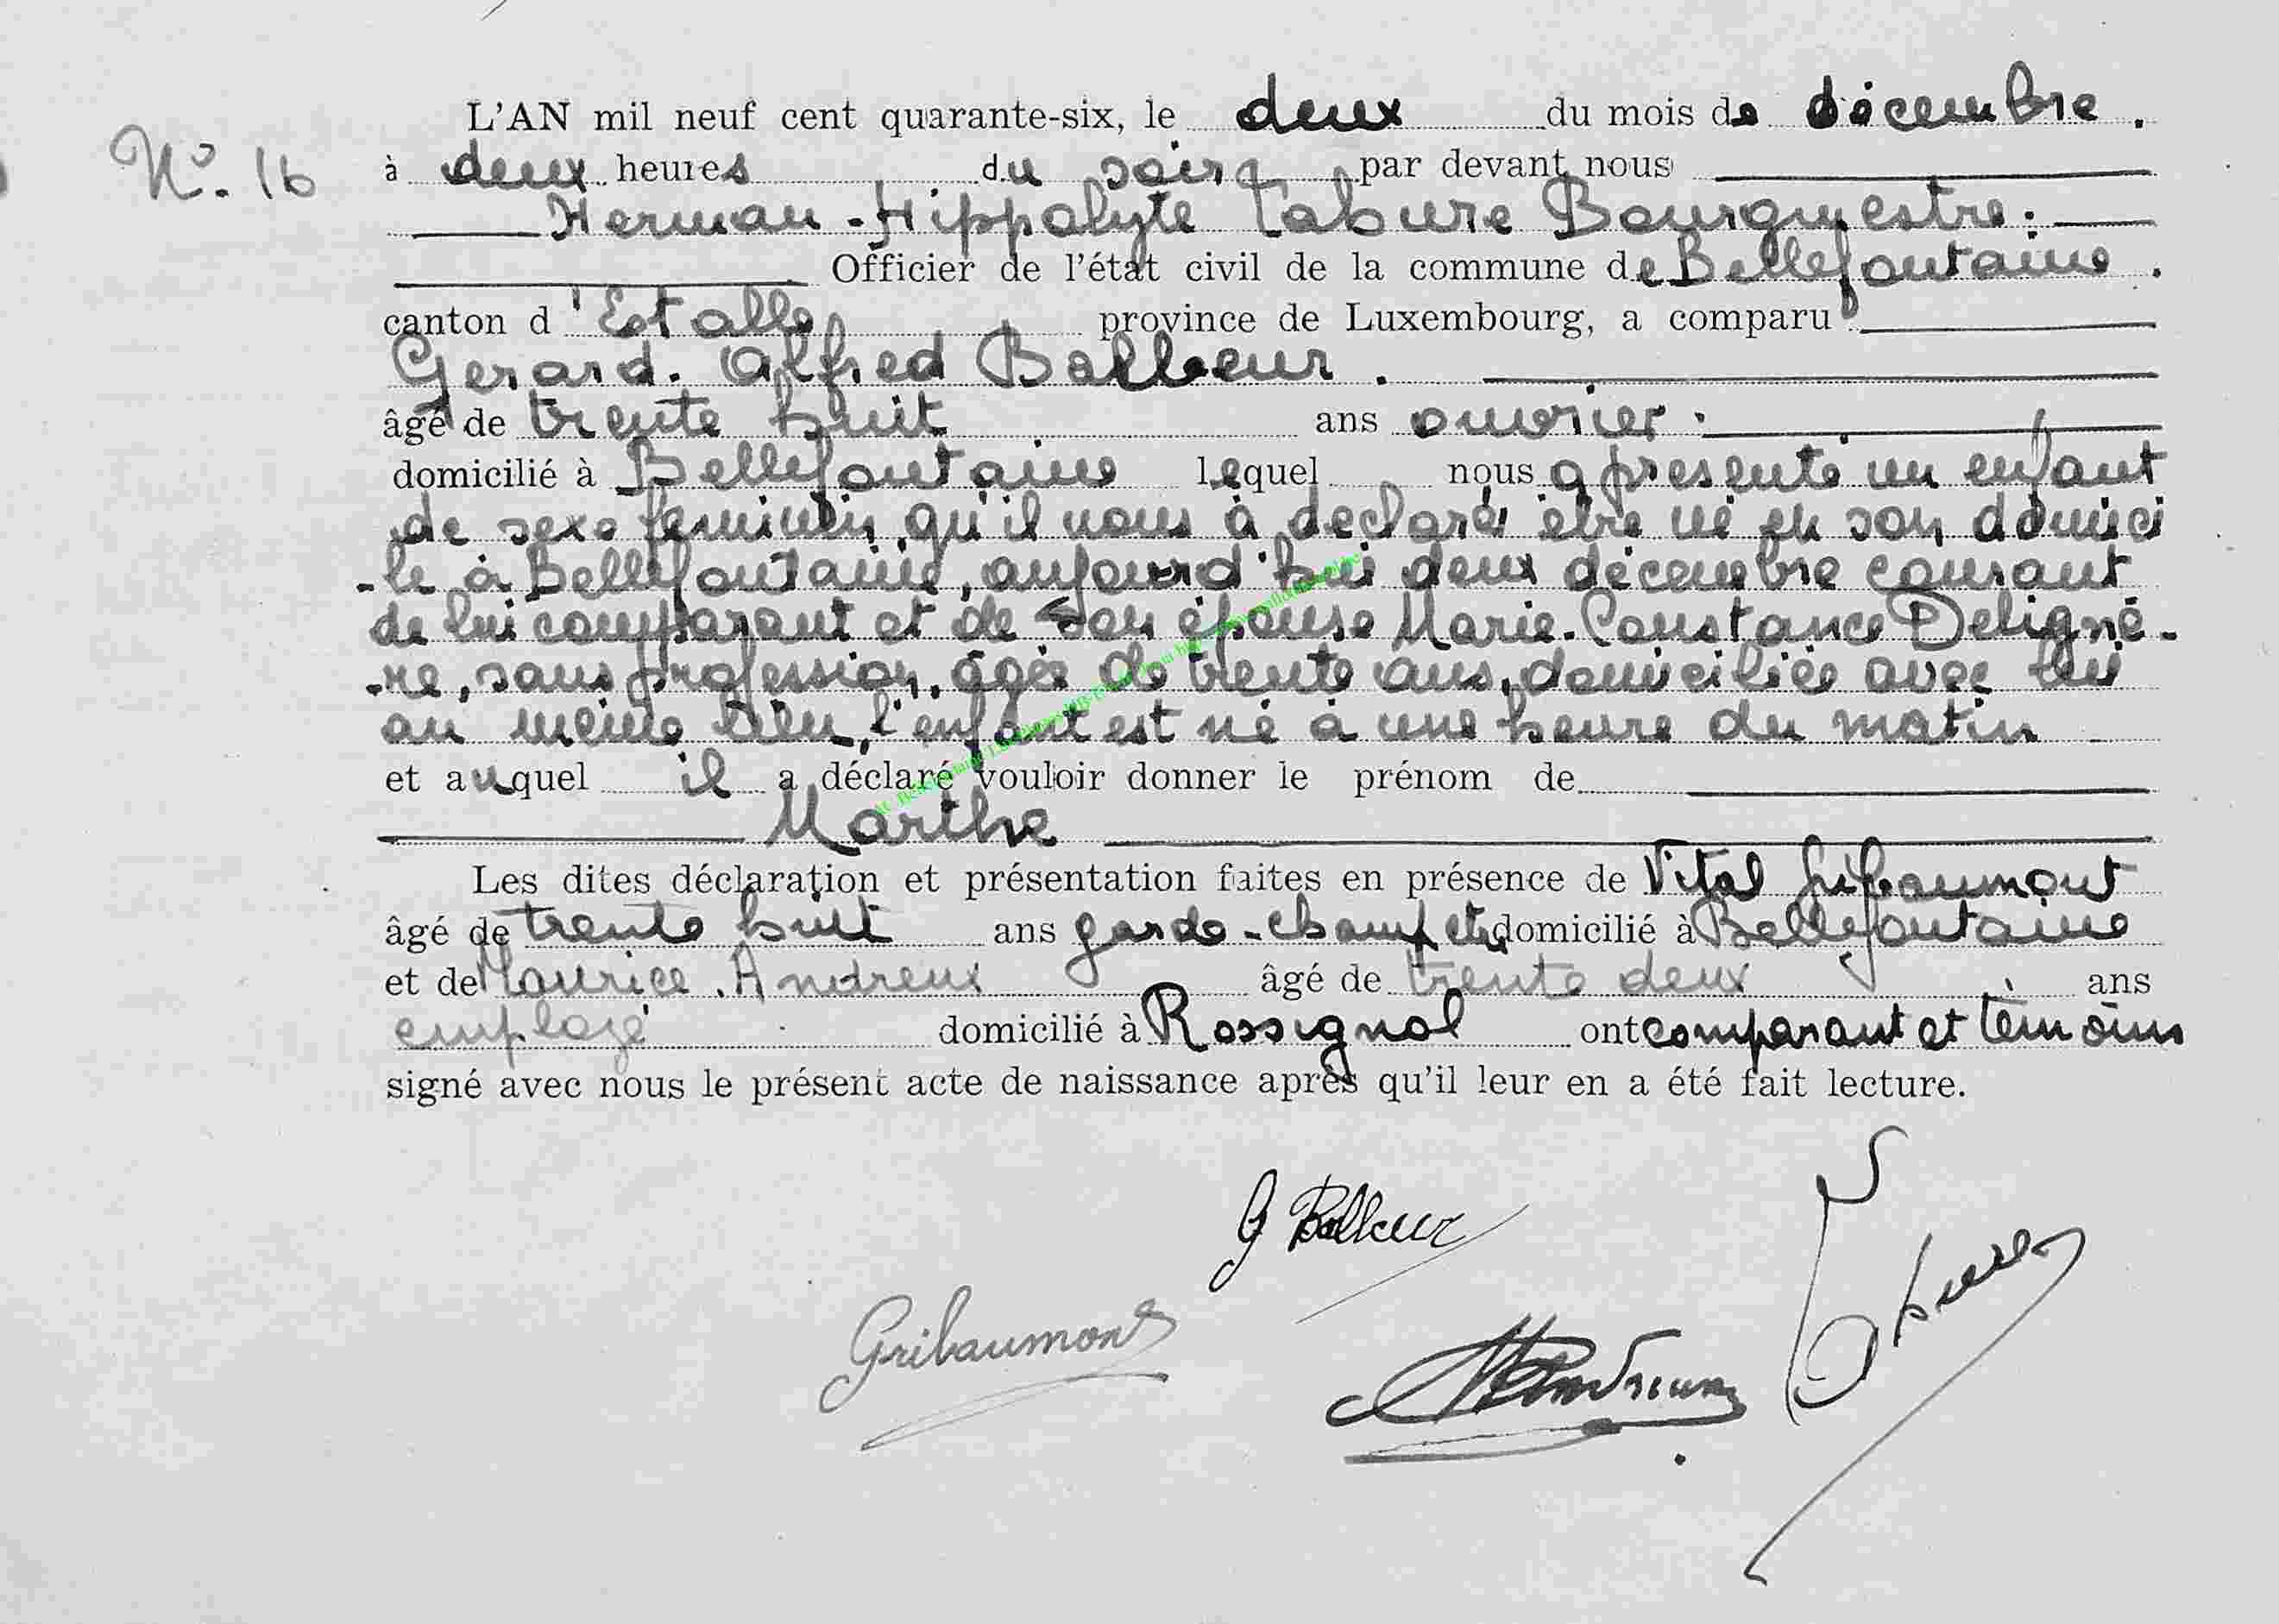 L'AN mil neuf cent quarante-six, le deux du mois de décembre.
N°. 16
à deux heures du soir par devant nous
Herman-Hippolyte Tabure Bourgmestre.
Officier de l'état civil de la commune de Bellefontaine.
canton d'Etalle province de Luxembourg, a comparu
Gerard. Alfred Balleur.
âgé de trente huit ans ouvrier.
domicilié à Bellefontaine lequel nous a presenté un enfant
de sexe feminin, qu'il nous à declaré être né en son domici
-le à Bellefontaine, aujourd'hui deux décembre courant
de lui comparant et de son épouse Marie-Constance Deligné-
-re, sans profession, âgée de trente ans, domiciliée avec lui
au même lieu, l'enfant est né à une heure du matin
et auquel il a déclaré vouloir donner le prénom de
Marthe
Les dites déclaration et présentation faites en présence de Vital Gribaumont
âgé de trente huit ans garde-champêtre domicilié à Bellefontaine
et de Maurice. Andreux âgé de trente deux ans
employé domicilié à Rossignol ont comparant et témoins
signé avec nous le présent acte de naissance après qu'il leur en a été fait lecture.
G Balleur
Gribaumont